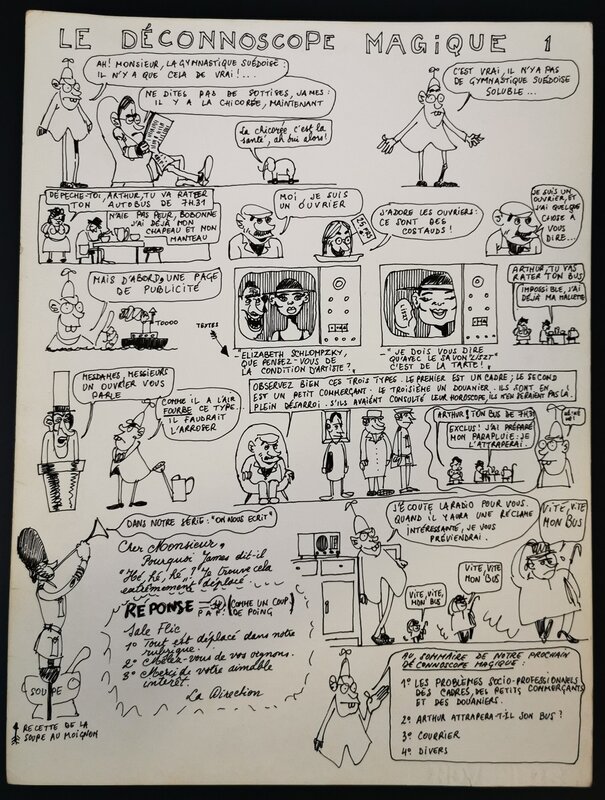 LE DÉCONNOSCOPE MAGIQUE 1
AH! MONSIEUR, LA GYMNASTIQUE SUÉDOISE:
IL N'Y A QUE CELA DE VRAI!...
NE DITES PAS DE SOTTISES, JAMES:
IL Y A LA CHICORÉE, MAINTENANT
La chicorée, c'est la
santé, ah oui alors!
C'EST VRAI, IL N'Y A PAS
DE GYMNASTIQUE SUÉDOISE
SOLUBLE...
DÉPÊCHE-TOI, ARTHUR, TU VA RATER
TON AUTOBUS DE 7H31
N'AIE PAS PEUR, BOBONNE
J'AI DÉJÀ MON
CHAPEAU ET MON
MANTEAU
MOI, JE SUIS
UN OUVRIER
J'ADORE LES OUVRIERS:
CE SONT DES
COSTAUDS!
JE SUIS UN
OUVRIER, ET
J'AI QUELQUE
CHOSE À
VOUS
DIRE...
MAIS D'ABORD, UNE PAGE
DE PUBLICITÉ
TOOOO
TEXTES
-"ELIZABETH SCHLOMPZKY,
QUE PENSEZ-VOUS DE
LA CONDITION D'ARTISTE?"
-"JE DOIS VOUS DIRE
QU'AVEC LE SAVON "LISZT"
C'EST DE LA TARTE!"
ARTHUR, TU VAS
RATER TON BUS
IMPOSSIBLE, J'AI
DÉJÀ MA MALLETTE
MESDAMES, MESSIEURS
UN OUVRIER VOUS
PARLE
COMME IL A L'AIR
FOURBE CE TYPE.
IL FAUDRAIT
L'ARROSER
OBSERVEZ BIEN CES TROIS TYPES. LE PREMIER EST UN CADRE; LE SECOND
EST UN PETIT COMMERÇANT. LE TROISIÈME UN DOUANIER. ILS SONT EN
PLEIN DÉSARROI. S'ILS AVAIENT CONSULTÉ LEUR HOROSCOPE, ILS N'EN SERAIENT PAS LÀ.
ARTHUR! TON BUS DE 7H31
EXCLUS! J'AI PRÉPARÉ
MON PARAPLUIE: JE
L'ATTRAPERAI.
HÉ! HÉ!
HÉ!
DANS NOTRE SÉRIE: "ON NOUS ÉCRIT"
Cher Monsieur,
Pourquoi James dit-il
"Hé, hé, hé"? Je trouve cela
extrêmement déplacé.
RÉPONSE P.A.F. (COMME UN COUP
DE POING)
Sale Flic
1° Tout est déplacé dans notre
rubrique!
2° Mêlez-vous de vos oignons.
3° Merci de votre aimable
intérêt.
La Direction
SOUPE
RECETTE DE LA
SOUPE AU MOIGNON
J'ÉCOUTE LA RADIO POUR VOUS.
QUAND IL Y AURA UNE RÉCLAME
INTÉRESSANTE, JE VOUS
PRÉVIENDRAI.
VITE, VITE,
MON BUS
VITE, VITE,
MON BUS
VITE, VITE
MON BUS
AU SOMMAIRE DE NOTRE PROCHAIN
DÉCONNOSCOPE MAGIQUE:
1° LES PROBLÈMES SOCIO-PROFESSIONNELS
DES CADRES, DES PETITS COMMERÇANTS
ET DES DOUANIERS.
2° ARTHUR ATTRAPERA-T-IL SON BUS?
3° COURRIER
4° DIVERS